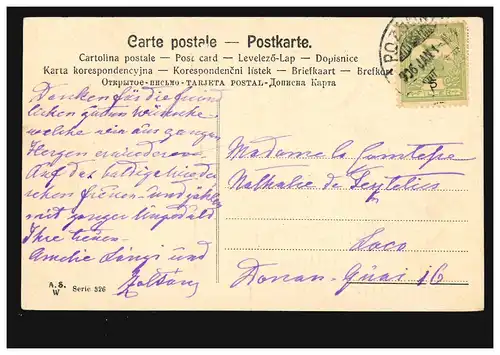 Carte postale — Postkarte.
Cartolina postale — Post card — Levelező-Lap — Dopisnice
Karta korespondencyjna — Korespondenční lístek — Briefkaart — Brefkort
Открытое-письмо - TARJETA POSTAL - Дописна Карта
POZSONY
Danken für die freund
lichen guten Wünsche
welche wir aus ganzem
Herzen erwiedern
Auf das baldige Wieder
sehen freuen
mit ganzer Ungeduld
Ihre treuen
Amelie und
Zoltán
Madame la Comtesse
Nathalie de
Loco
Donau-Quai 16
A. S.
W Serie 526